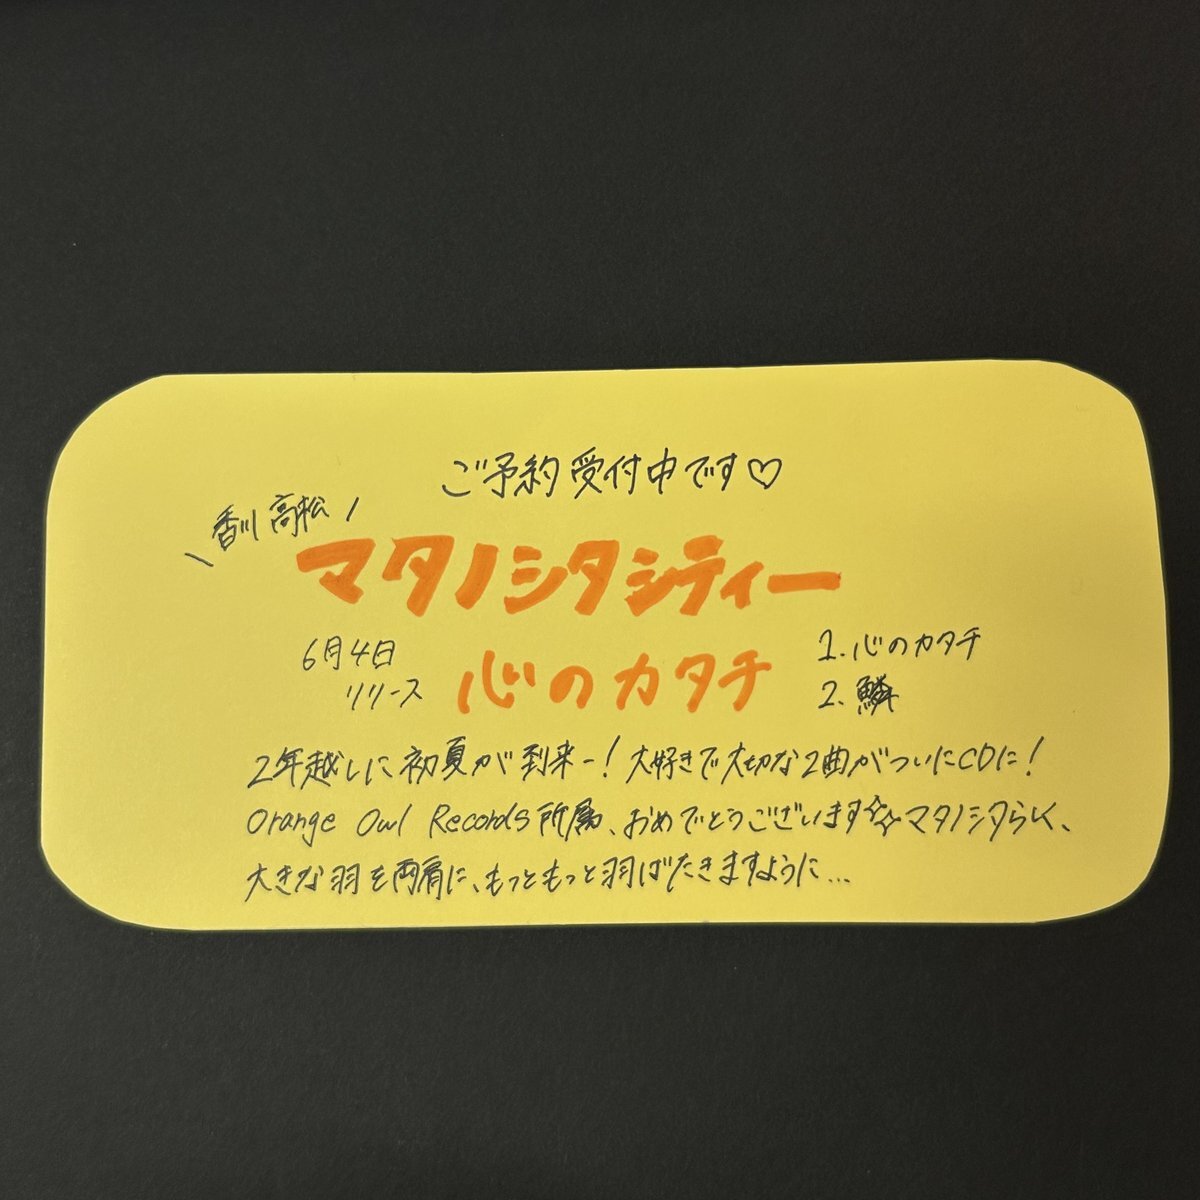 ご予約受付中です♡
\香川 高松/
マタノシタシティー
6月4日
リリース
心のカタチ
1. 心のカタチ
2. 鱗
2年越しに初夏が到来ー!大好きで大切な2曲がついにCDに!
Orange Owl Records所属、おめでとうございます✨マタノシタらしく、
大きな羽を両肩に、もっともっと羽ばたきますように...